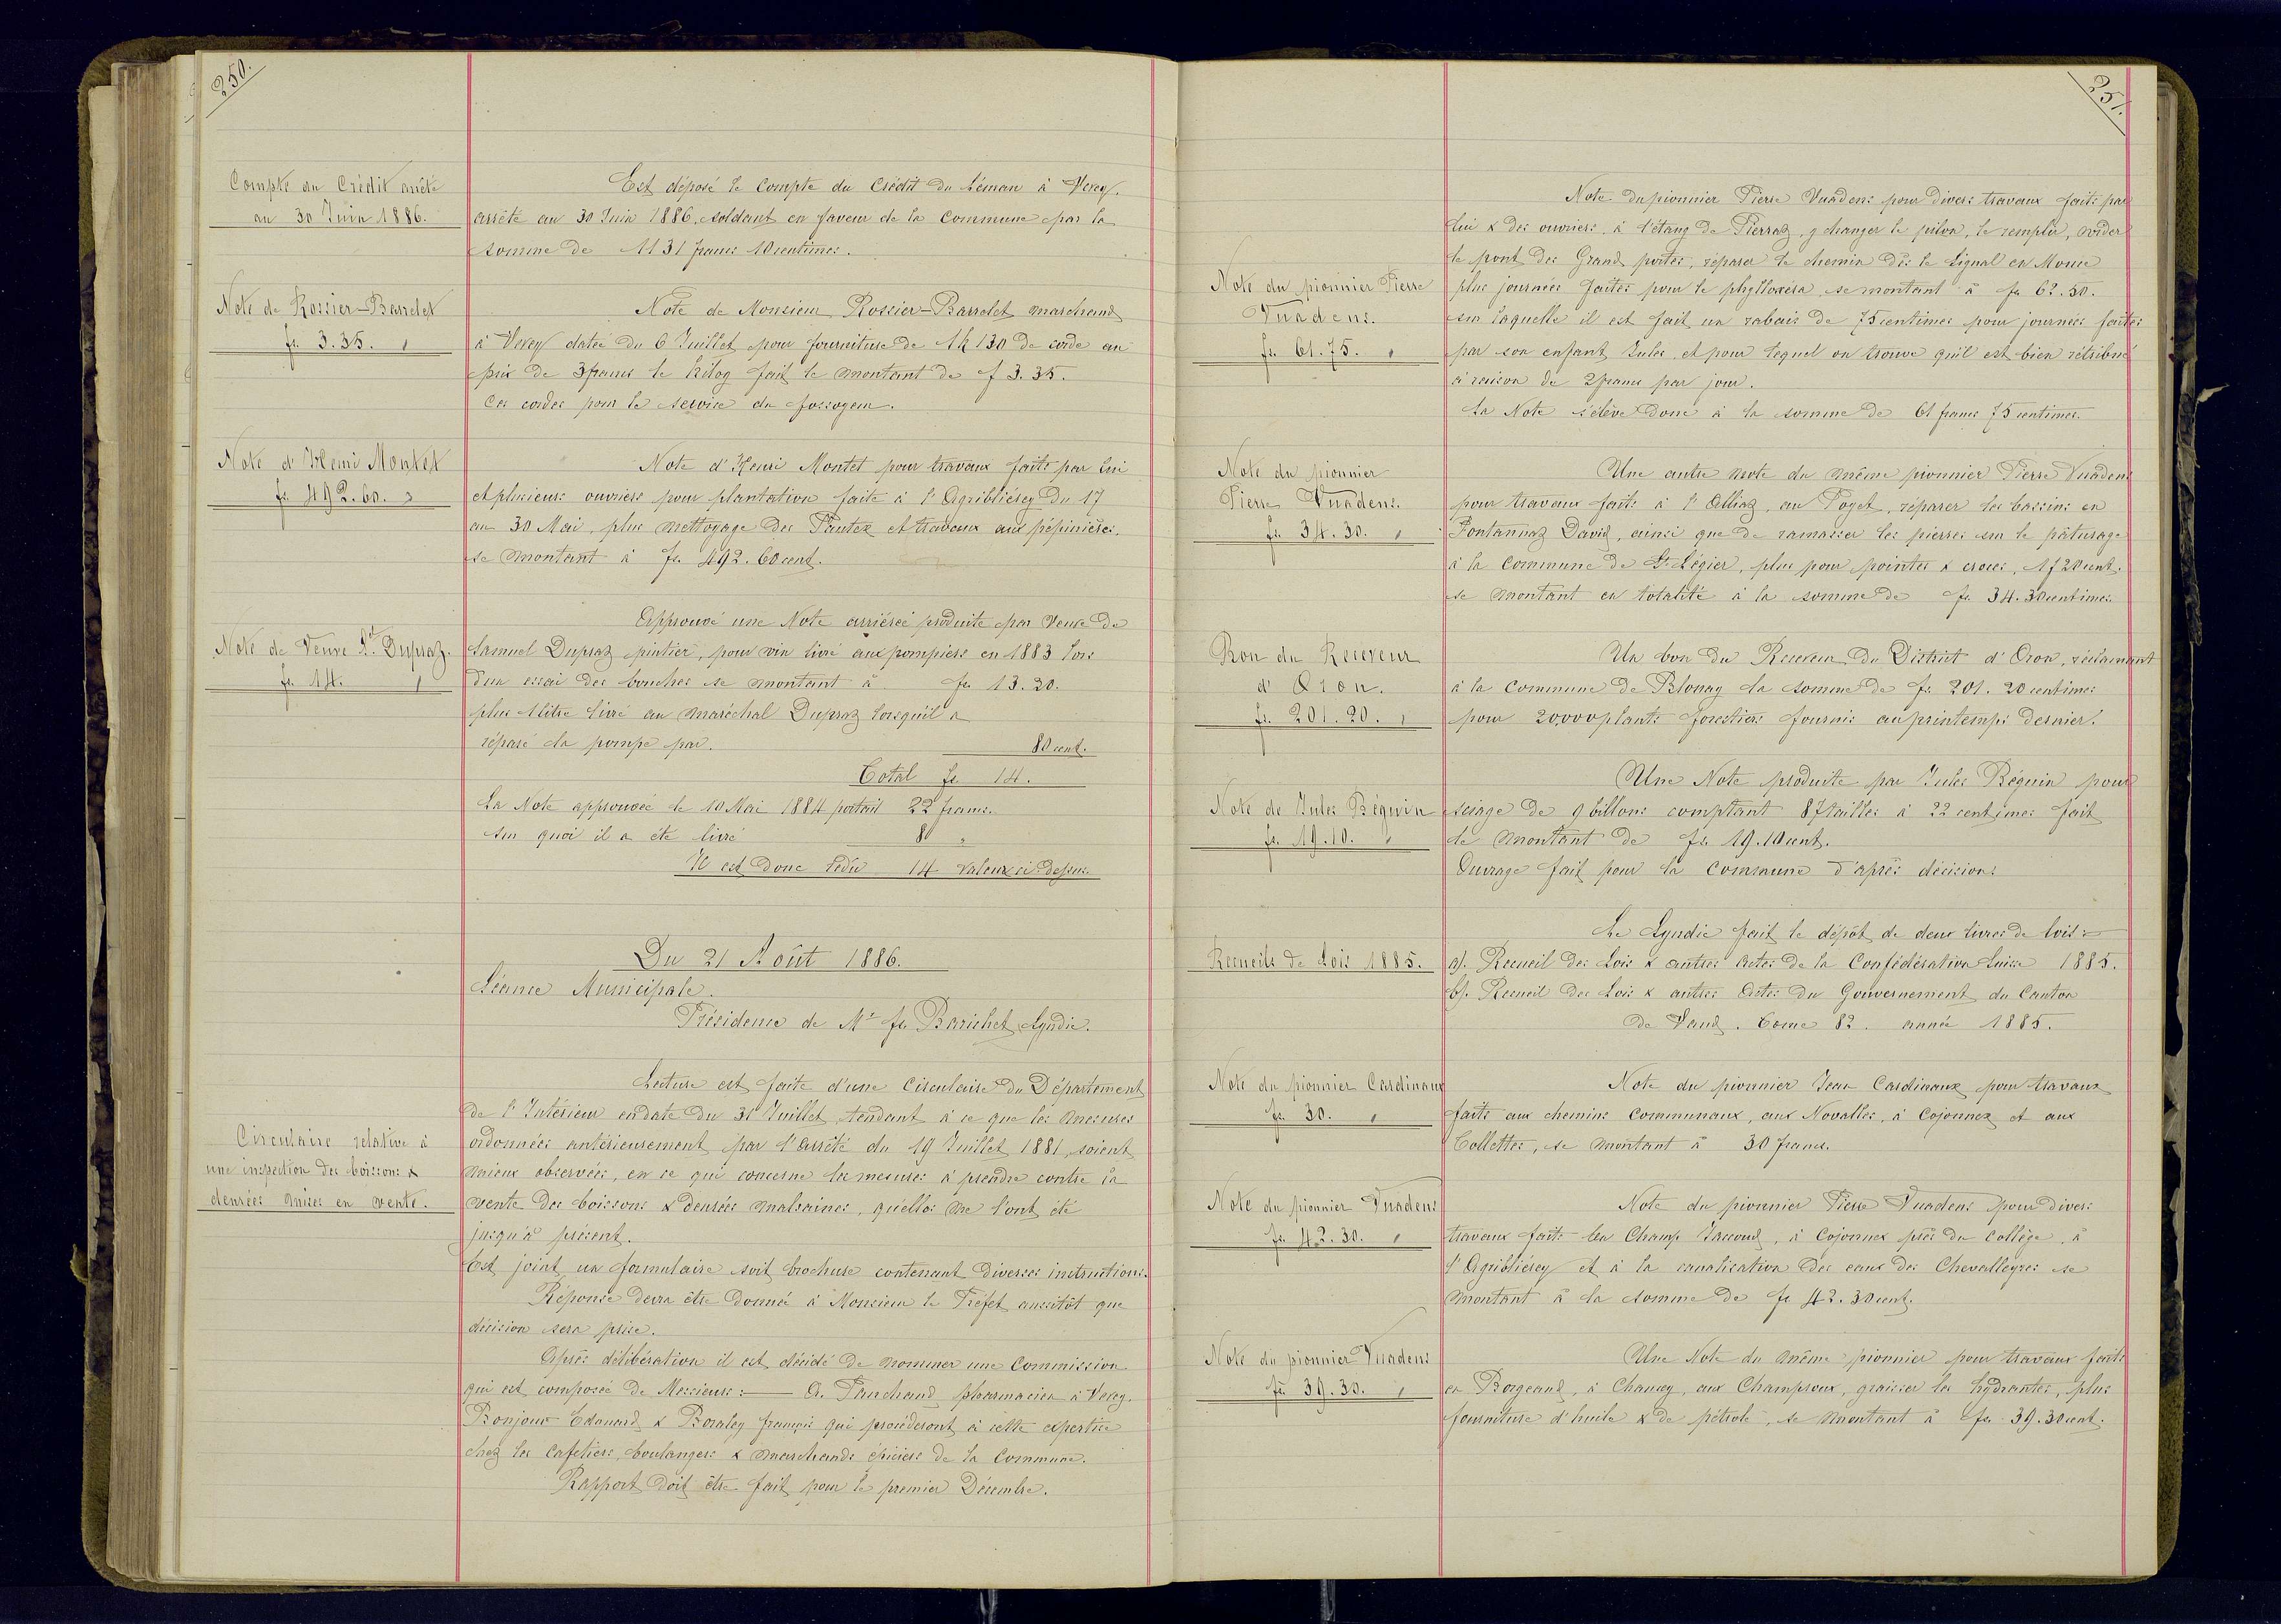 250.
Compte au Crédit arrêté
au 30 Juin 1886.
Est déposé le Compte du Crédit du Léman à Vevey.
arrêté au 30 Juin 1886, soldant en faveur de la Commune par la
somme de 1131 francs 10 centimes.
Note de Rossier-Barrelet
fr. 3.35.
Note de Monsieur Rossier-Barrelet marchand
à Vevey datée du 6 Juillet pour fourniture de 1k 130 de corde au
prix de 3 francs le Kilog fait le montant de f 3.35.
Ces cordes pour le service du fossoyeur.
Note d'Henri Montet
fr. 492.60.
Note d'Henri Montet pour travaux faits par lui
et plusieurs ouvriers pour plantation faite à l'Agribliérey du 17
au 30 Mai, plus nettoyage des Pautex et travaux aux pépinières.
se montant à fr. 492.60 cent.
Note de Veuve Sl. Dupraz.
fr. 14.
Approuvé une Note arriérée produite par Veuve de
Samuel Dupraz pintier, pour vin livré aux pompiers en 1883 lors
d'un essai des bouches se montant à fr 13.20.
plus 1 litre livré au maréchal Dupraz lorsqu'il a
réparé la pompe par. 80 cent.
Total fr 14.
La Note approuvée le 10 Mai 1884 portait 22 francs.
sur quoi il a été livré 8 "
Il est donc redû 14 valeur ci-dessus.
Du 21 Août 1886.
Séance Municipale.
Présidence de Mr fs Barichet Syndic.
Circulaire relative à
une inspection des boissons &
denrées mises en vente.
Lecture est faite d'une Circulaire du Département
de l'Intérieur en date du 31 Juillet, tendant à ce que les mesures
ordonnées antérieurement par l'arrêté du 19 Juillet 1881, soient
mieux observées, en ce qui concerne les mesures à prendre contre la
vente des boissons & denrées malsaines, qu'elles ne l'ont été
jusqu'à présent.
Est joint un formulaire soit brochure contenant diverses instructions.
Réponse devra être donnée à Monsieur le Préfet aussitôt que
décision sera prise.
Après délibération il est décidé de nommer une Commission
qui est composée de Messieurs: — A. Panchaud pharmacien à Vevey.
Bonjour Edouard & Boraley françois qui procéderont à cette expertise
chez les Cafetiers, boulangers & marchands épiciers de la Commune.
Rapport doit être fait pour le premier Décembre.
251.
Note du pionnier Pierre
Vuadens.
fr. 61.75.
Note du pionnier Pierre Vuadens pour divers travaux faits par
lui & des ouvriers, à l'étang de Pierraz, y changer le pilon, le remplir, vider
le pont des Grand portes, réparer le chemin dès le Signal en Mouse
plus journées faites pour le phylloxéra, se montant à fr 62.50.
sur laquelle il est fait un rabais de 75 centimes pour journées faites
par son enfant Jules, et pour lequel on trouve qu'il est bien rétribué
à raison de 2 francs par jour.
La Note s'élève donc à la somme de 61 francs 75 centimes.
Note du pionnier
Pierre Vuadens.
fr. 34.30.
Une autre note du même pionnier Pierre Vuadens
pour travaux faits à l'Alliaz, au Poyet, réparer les bassins en
Fontannaz David, ainsi que de ramasser les pierres sur le pâturage
à la Commune de St. Légier, plus pour pointes & crocs, 1 f 20 cent.
se montant en totalité à la somme de fr. 34.30 centimes.
Bon du Receveur
d'Oron.
fr. 201.20.
Un bon du Receveur du District d'Oron, réclamant
à la Commune de Blonay la somme de fr. 201.20 centimes
pour 20,000 plants forestiers fournis au printemps dernier.
Note de Jules Béguin
fr. 19.10.
Une Note produite par Jules Béguin pour
sciage de 9 billons comptant 87 tailles à 22 centimes fait
le montant de fr. 19.10 cent.
Ouvrage fait pour la Commune d'après décisions
Recueils de Lois 1885.
Le Syndic fait le dépôt de deux livres de lois:
a). Recueil des Lois & autres actes de la Confédération Suisse 1885.
b). Recueil des Lois & autres Actes du Gouvernement du Canton
de Vaud. Tome 82. année 1885.
Note du pionnier Cardinaux
fr. 30.
Note du pionnier Jean Cardinaux pour travaux
faits aux chemins Communaux, aux Novalles, à Cojonnex et aux
Tollettes, se montant à 30 francs.
Note du pionnier Vuadens
fr. 42.30.
Note du pionnier Pierre Vuadens pour divers
travaux faits en Champ Jaccoud, à Cojonnex près du Collège, à
l'Agribliérey et à la canalisation des eaux des Chevalleyres se
montant à la somme de fr 42.30 cent.
Note du pionnier Vuadens
fr. 39.30.
Une Note du même pionnier pour travaux faits
en Borgeaud, à Chaucey, aux Champsoux, graisser les hydrantes, plus
fourniture d'huile & de pétrole, se montant à fr. 39.30 cent.